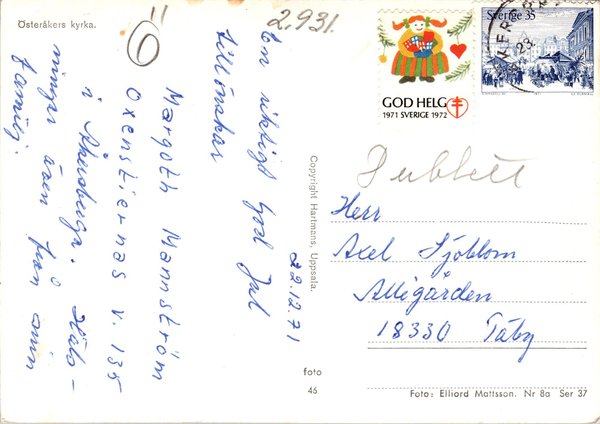 Österåkers kyrka.
2.931.
En riktigt God Jul
tillönskar
22.12.71
Margoth Mannström
Oxenstiernas v. 135
i Åkersberga. Häls-
ningar även från min
familj.
Copyright Hartmans, Uppsala.
foto
46
GOD HELG
1971 SVERIGE 1972
Sverige 35
Dublett
Herr
Axel Sjöblom
Allégården
18330 Täby
Foto: Elliord Mattsson. Nr 8a Ser 37